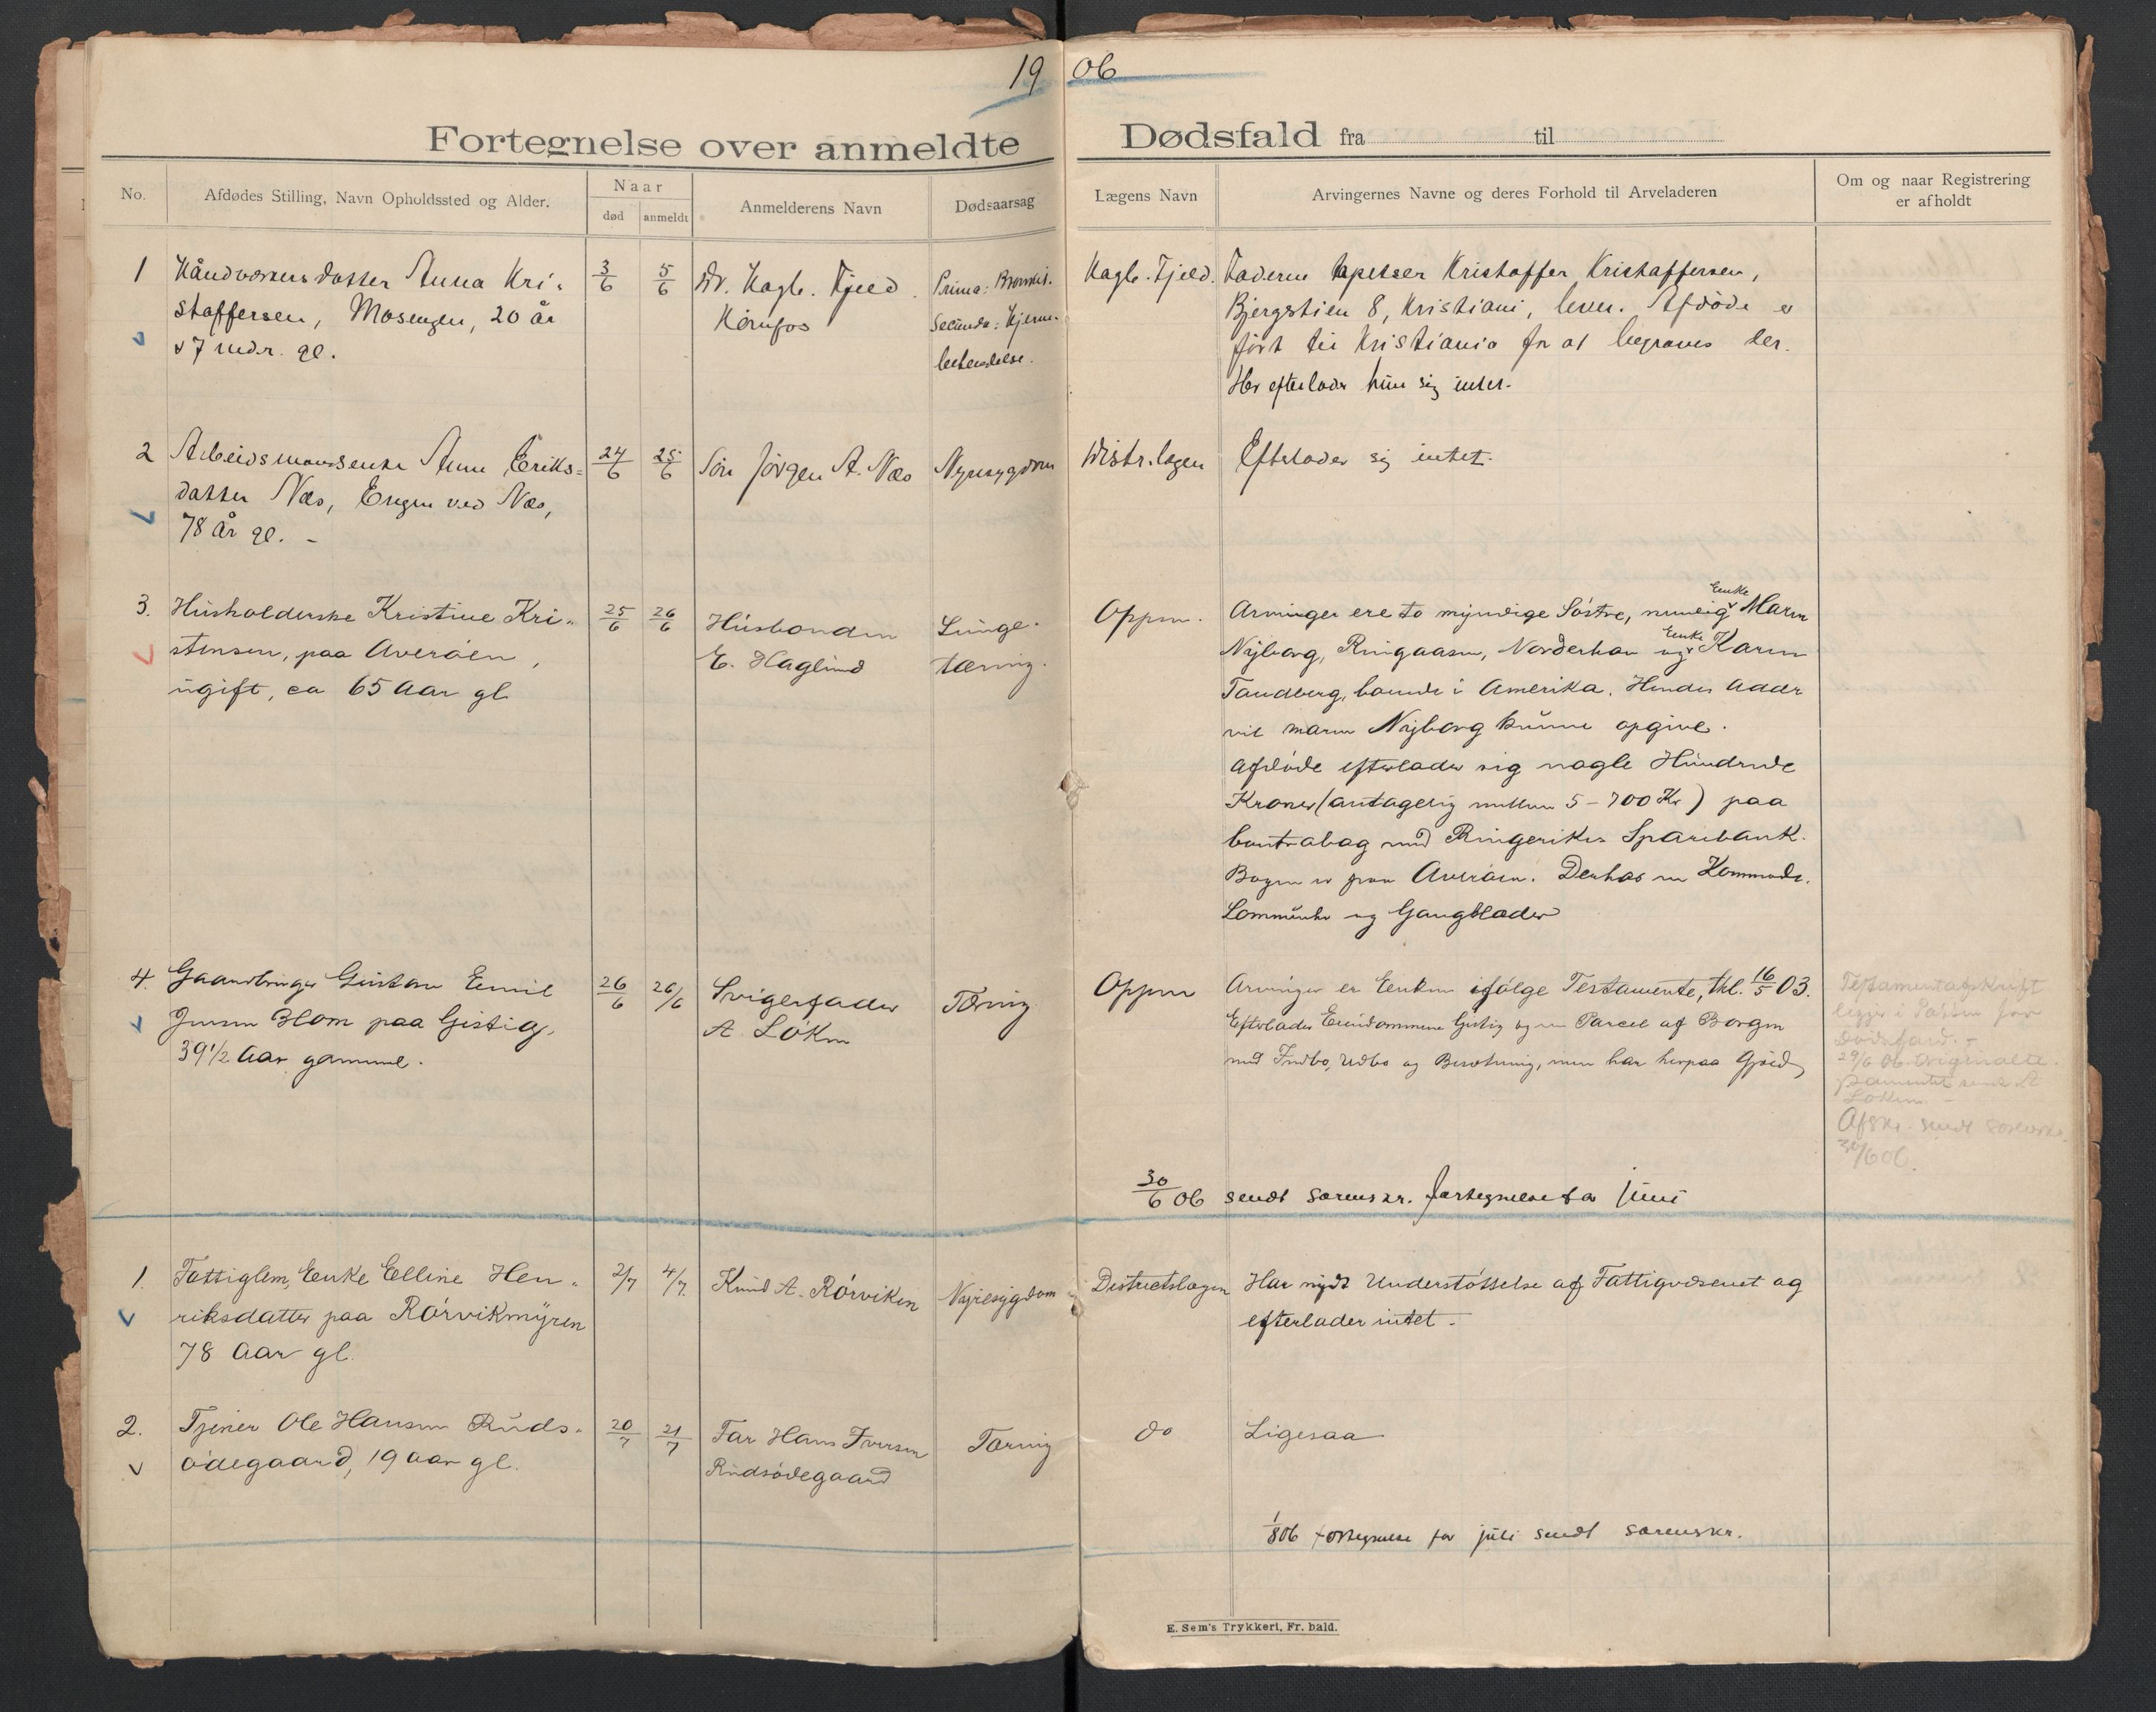 19 06
Fortegnelse over anmeldte Dødsfald fra til
No.
Afdødes Stilling, Navn Opholdssted og Alder.
Naar
død
anmeldt
Anmelderens Navn
Dødsaarsag
Lægens Navn
Arvingernes Navne og deres Forhold til Arveladeren
Om og naar Registrering
er afholdt
1
Håndværkersdatter Anna Kri-
stoffersen, Mosengen, 20 år
7 mdr. gl.
3/6
5/6
Dr. Hagb. Fjeld
Hønefos
Prima: Bronkit.
Secunda: Hjerne-
betændelse.
Hagb. Fjeld.
Faderen tapetser Kristoffer Kristoffersen,
Bjergstien 8, Kristiani, lever. Afdöde er
fört til Kristiania for at begraves der.
Her efterlader hun sig intet.
2
Arbeidsmandsenke Anne Eriks-
datter Næs, Engen ved Næs,
78 år gl. -
24/6
25/6
Sön Jörgen A. Næs
Nyresygdom
Distr.lægen
Efterlader sig intet.
3.
Husholderske Kristine Kri-
stensen, paa Averöien,
ugift, ca 65 Aar gl
25/6
26/6
Husbonden
E. Haglund
Lunge-
tæring.
Oppen.
Enke
Arvinger ere to myndige Söstre, nemlig Maren
Enke
Nyborg, Ringaasen, Norderhov og Karen
Tandberg, boende i Amerika. Hendes Addr
vil Maren Nyborg kunne opgive.
Afdöde efterlader sig nogle Hundrede
Kroner (antagelig mellem 5-700 Kr) paa
bog med Ringerikes Sparebank.
Bogen er paa Averöien. Derhos en Kommode,
Lommeuhr og Gangklæder
4.
Gaardbruger Gustav Emil
Jensen Blom paa Gistig,
39 1/2 Aar gammel.
26/6
26/6
Svigerfader
A. Löken
Tæring
Oppen
Arvinger er Enken ifölge Testamente, tkl. 16/5 03.
Efterlader Eiendommene Gistig og en Parcel af Borgen
med Indbo, Udbo og Besætning, men har herpaa Gjæld
Testamentafskrift
ligger i Pakken for
dødsfald. -
29/6 06
sendt A
Löken. -
Afskr. sendt sorenskr.
30/6 06.
30/6 06 sendt sorenskr. fortegnelse for juni
1.
Fattiglem, Enke Elline Hen-
riksdatter paa Rörvikmyren
78 Aar gl.
2/7
4/7
Knud A. Rörviken
Nyresygdom
Districtslægen
Har nydt Understöttelse af Fattigvæsenet og
efterlader intet.
2.
Tjener Ole Hansen Ruds-
ödegaard, 19 aar gl.
20/7
21/7
Far Hans Iversen
Rudsödegaard
Tæring
do
Ligesaa
1/8 06 fortegnelse for juli sendt sorenskr.
E. Sem's Trykkeri, Fr. hald.